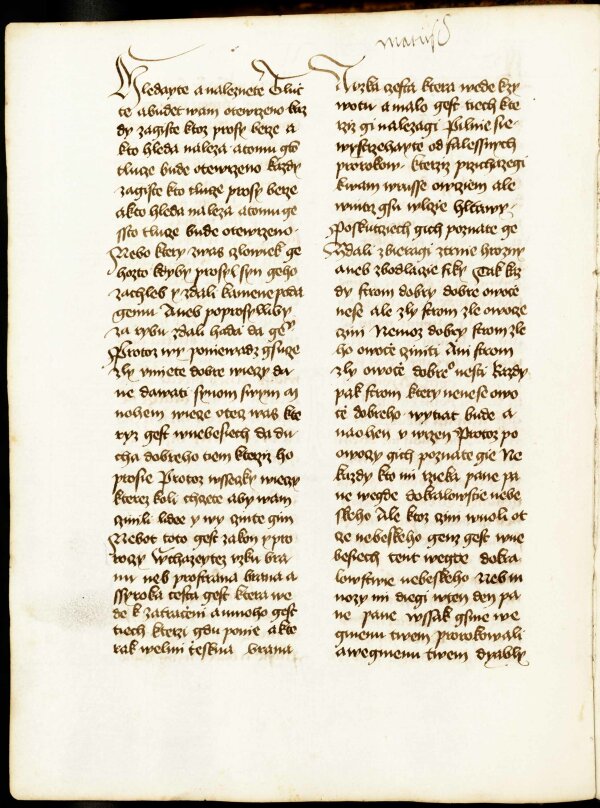 matúſs
Hledayte a naleznete Tluc
te a budet wam otewrzeno kaz
dy zagiſte ktoz proſy berze a
kto hleda naleza atomu gto
tlucze bude otewrzeno kazdy
zagiſte kto tlucze proſy berze
a kto hleda naleza atomu ge
ſſto tlucze bude otewrzeno
Nebo ktery zwas czlowiek ge
hozto kdyby proſyl ſyn geho
zachleb y zdali kamene poda
gemu Aneb poproſylliby
za rybu zdali hada da geͫu
Protoz wy poniewadz gſucze
zly vmiete dobre wiecy da
ne dawati ſynom ſwym m
nohem wiecze otecz was kte
ryz geſt wnebeſiech da du
cha dobreho tiem kterziz ho
proſie Protoz wſſecky wiecy
kterez koli chcete aby wam
czinili lidee y wy czinte gim
Nebot toto geſt zakon y pro
roczy Wchazeytez uzku bra
nu neb proſtrana brana a
ſſyroka ceſta geſt ktera we
de k zatraceni a mnoho geſt
tiech kterzi gdu ponie a kte
rak welmi teſkna brana
Auzka ceſta ktera wede kzy
wotu a malo geſt tiech kte
rziz gi nalezagi Pilnie ſie
wyſtrzehayte od falleſſnych
prorokow kterziz przichazegi
kwam wruſſe owcziem ale
wnitrz gſu wlczie hltawy
Poskutciech gich poznate ge
Wdali zbieragi ztrnie hrozny
aneb zbodlacie fiky Tak kaz
dy ſtrom dobry dobre owocze
neſe ale zly ſtrom zle owocze
czini Nemoz dobry ſtrom zle
ho owoce cziniti Ani ſtrom
zly owoce dobreº neſti Kazdy
pak ſtrom ktery neneſe owo
ce dobreho wytiat bude a
na ohen v wrzen Protoz po
owoczy gich poznate gie Ne
kazdy kto mi rzieka pane pa
ne wegde do kralowſtwie nebe
ſkeho Ale ktoz czini wuoli ot
cze nebeſkeho genz geſt wne
beſiech tent wegde dokra
lowſtwie nebeſkeho Neb m
nozy mi diegi wten den pa
ne pane wſſak gſme we
gmenu twem prorokowali
a wegmenu twem dyably